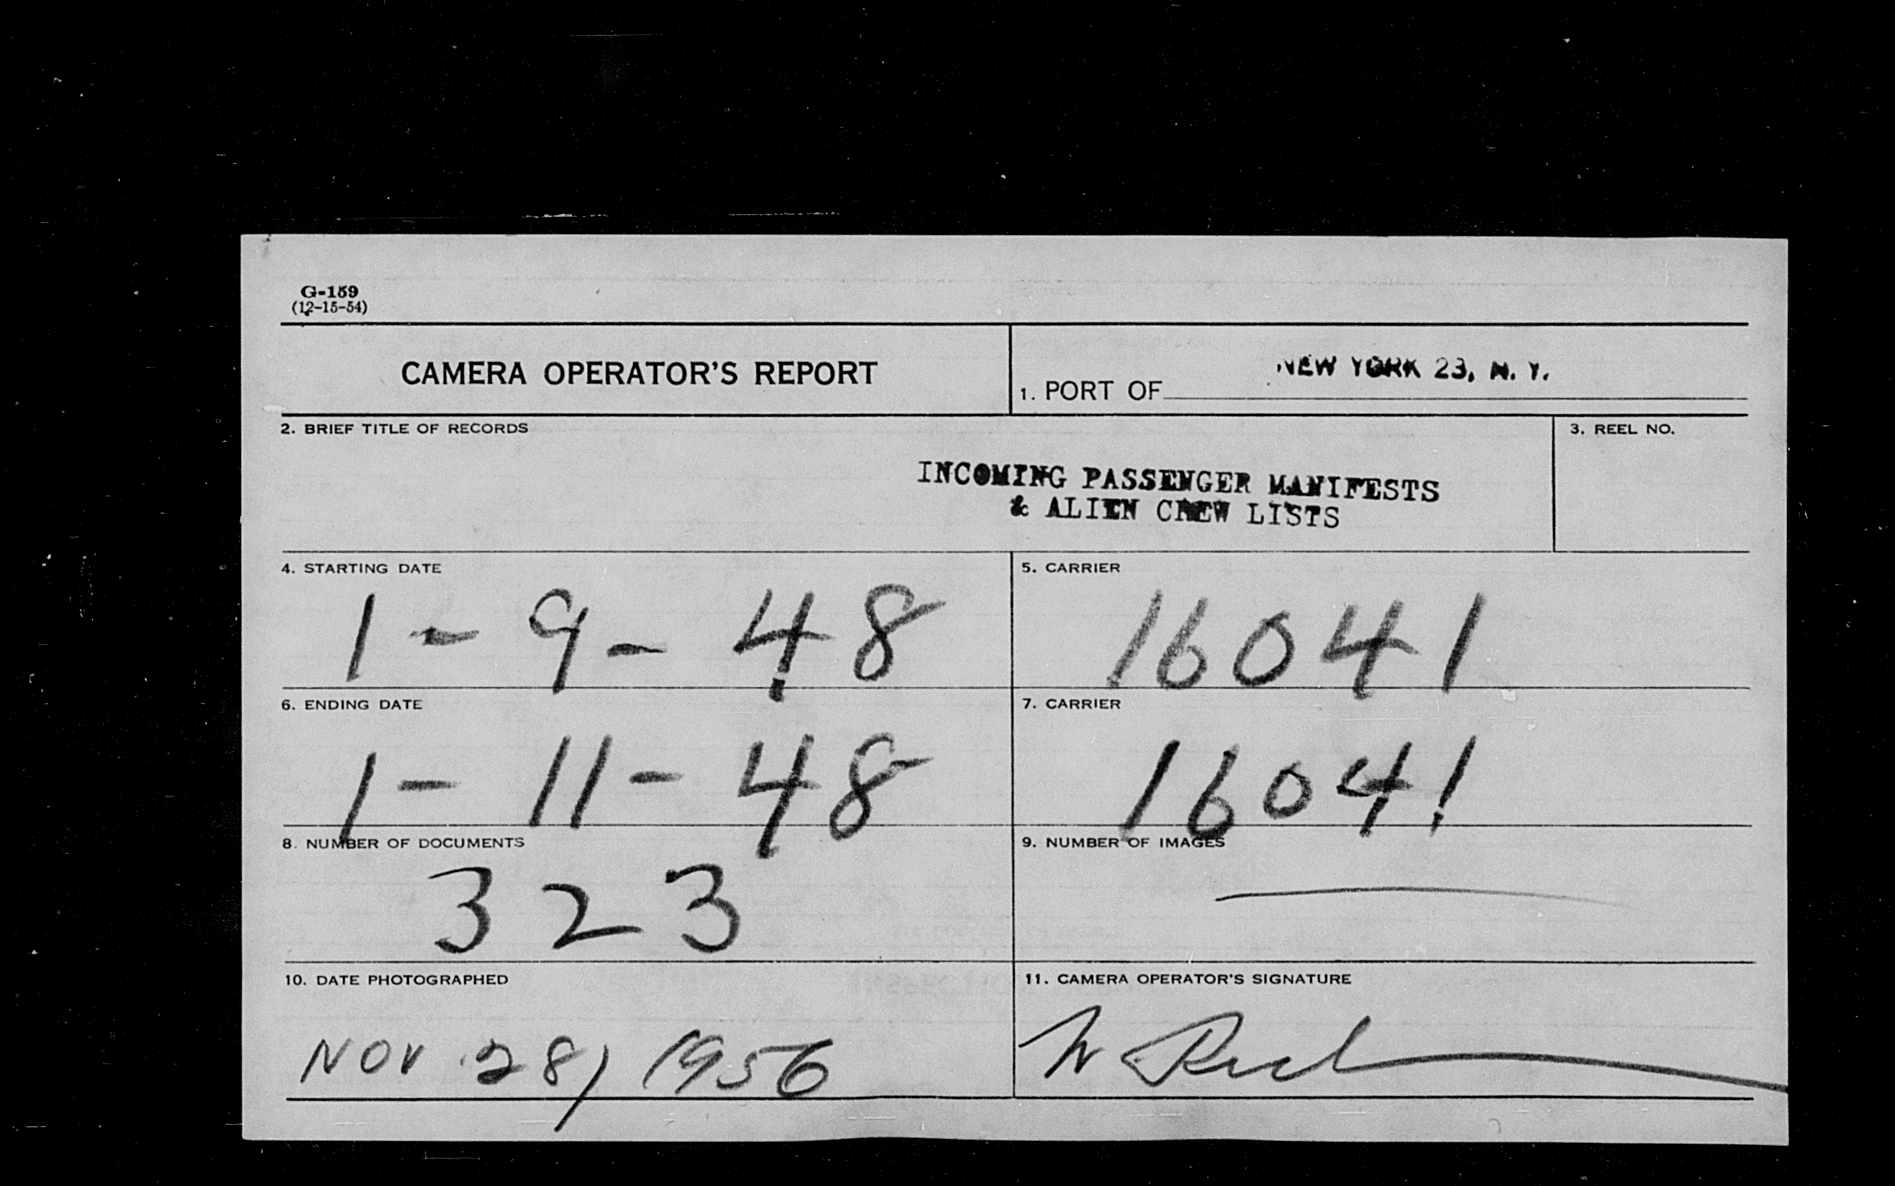 G-159
(12-15-54)
CAMERA OPERATOR'S REPORT
1. PORT OF NEW YORK 23, N. Y.
2. BRIEF TITLE OF RECORDS
3. REEL NO.
INCOMING PASSENGER MANIFESTS
& ALIEN CREW LISTS
4. STARTING DATE
1-9-48
5. CARRIER
16041
6. ENDING DATE
1-11-48
7. CARRIER
16041
8. NUMBER OF DOCUMENTS
323
9. NUMBER OF IMAGES
10. DATE PHOTOGRAPHED
NOV 28, 1956
11. CAMERA OPERATOR'S SIGNATURE